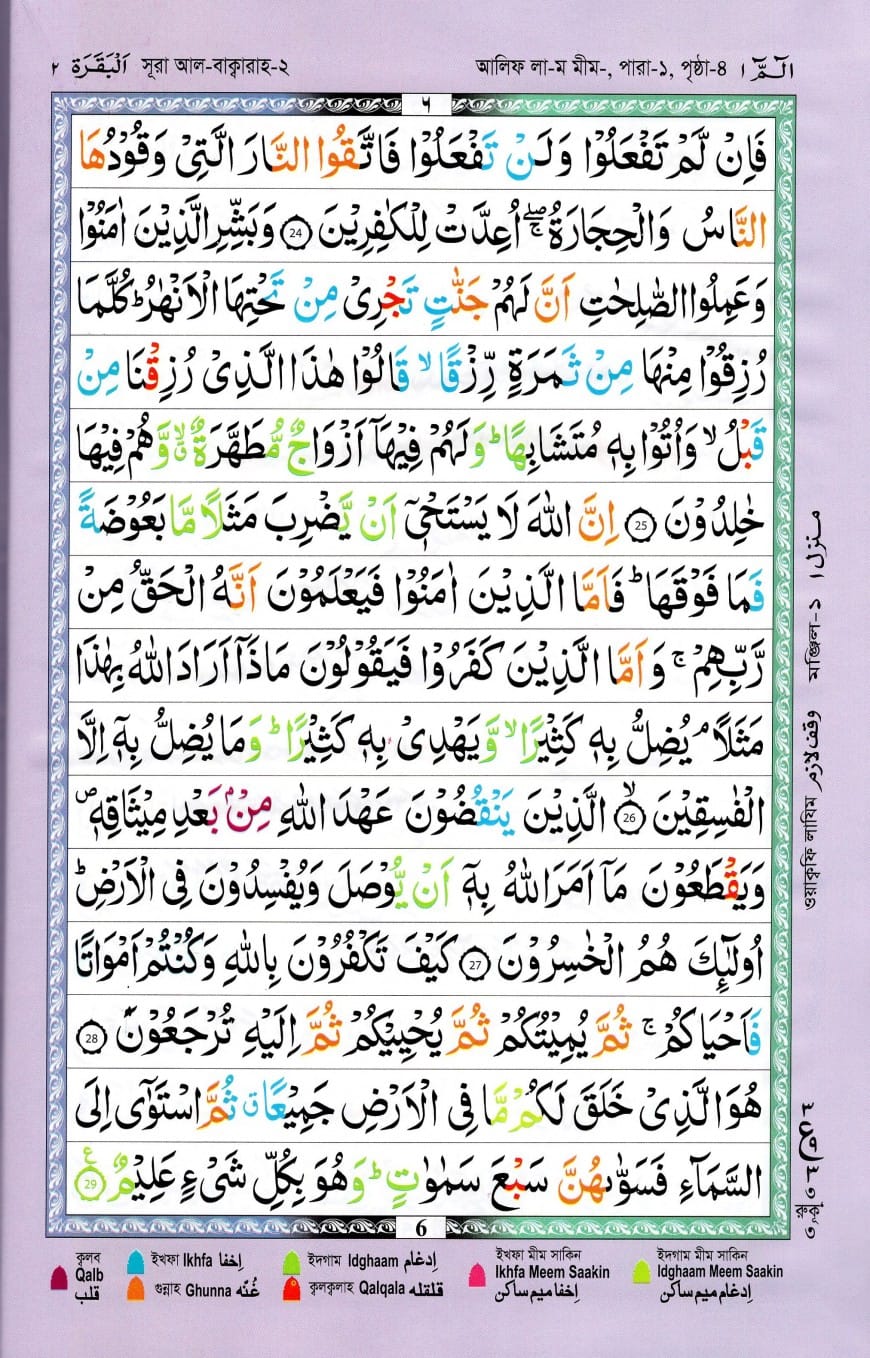 اَلْبَقَرَة ٢ সূরা আল-বাক্বারাহ-২ আলিফ লা-ম মীম-, পারা-১, পৃষ্ঠা-৪ الٓمّٓ ١
٦
فَاِنْ لَّمْ تَفْعَلُوْا وَلَنْ تَفْعَلُوْا فَاتَّقُوا النَّارَ الَّتِىْ وَقُوْدُهَا
النَّاسُ وَالْحِجَارَةُ ۖۚ اُعِدَّتْ لِلْكٰفِرِيْنَ 24 وَبَشِّرِ الَّذِيْنَ اٰمَنُوْا
وَعَمِلُوا الصّٰلِحٰتِ اَنَّ لَهُمْ جَنّٰتٍ تَجْرِىْ مِنْ تَحْتِهَا الْاَنْهٰرُ ؕ كُلَّمَا
رُزِقُوْا مِنْهَا مِنْ ثَمَرَةٍ رِّزْقًا ۙ قَالُوْا هٰذَا الَّذِىْ رُزِقْنَا مِنْ
قَبْلُ ۙ وَاُتُوْا بِهٖ مُتَشَابِهًا ؕ وَلَهُمْ فِيْهَآ اَزْوَاجٌ مُّطَهَّرَةٌ ۙۗ وَّهُمْ فِيْهَا
خٰلِدُوْنَ 25 اِنَّ اللّٰهَ لَا يَسْتَحْىٖٓ اَنْ يَّضْرِبَ مَثَلًا مَّا بَعُوْضَةً
فَمَا فَوْقَهَا ؕ فَاَمَّا الَّذِيْنَ اٰمَنُوْا فَيَعْلَمُوْنَ اَنَّهُ الْحَقُّ مِنْ
رَّبِّهِمْ ۚ وَاَمَّا الَّذِيْنَ كَفَرُوْا فَيَقُوْلُوْنَ مَاذَآ اَرَادَ اللّٰهُ بِهٰذَا
مَثَلًا ۘ يُضِلُّ بِهٖ كَثِيْرًا ۙ وَّيَهْدِىْ بِهٖ كَثِيْرًا ؕ وَمَا يُضِلُّ بِهٖٓ اِلَّا
الْفٰسِقِيْنَ ۙ 26 الَّذِيْنَ يَنْقُضُوْنَ عَهْدَ اللّٰهِ مِنْۢ بَعْدِ مِيْثَاقِهٖ ۪
وَيَقْطَعُوْنَ مَآ اَمَرَ اللّٰهُ بِهٖٓ اَنْ يُّوْصَلَ وَيُفْسِدُوْنَ فِى الْاَرْضِ ؕ
اُولٰٓئِكَ هُمُ الْخٰسِرُوْنَ 27 كَيْفَ تَكْفُرُوْنَ بِاللّٰهِ وَكُنْتُمْ اَمْوَاتًا
فَاَحْيَاكُمْ ۚ ثُمَّ يُمِيْتُكُمْ ثُمَّ يُحْيِيْكُمْ ثُمَّ اِلَيْهِ تُرْجَعُوْنَ 28
هُوَ الَّذِىْ خَلَقَ لَكُمْ مَّا فِى الْاَرْضِ جَمِيْعًا ۗ ثُمَّ اسْتَوٰٓى اِلَى
السَّمَآءِ فَسَوّٰىهُنَّ سَبْعَ سَمٰوٰتٍ ؕ وَهُوَ بِكُلِّ شَىْءٍ عَلِيْمٌ ع 29
منزل ١ মঞ্জিল-১
وقف لازم ওয়াক্বফি লাযিম
রুকূ ৩
6
ক্বলব Qalb قلب
ইখফা Ikhfa اِخفا
গুন্নাহ Ghunna غُنّه
ইদগাম Idghaam اِدغام
ক্বলক্বলাহ Qalqala قلقله
ইখফা মীম সাকিন Ikhfa Meem Saakin اِخفا ميم ساكن
ইদগাম মীম সাকিন Idghaam Meem Saakin اِدغام ميم ساكن